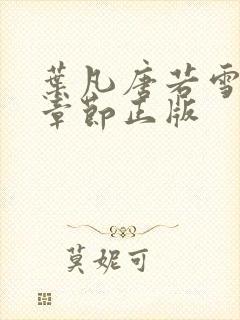 葉凡唐若雪
章節正版
莫妮可